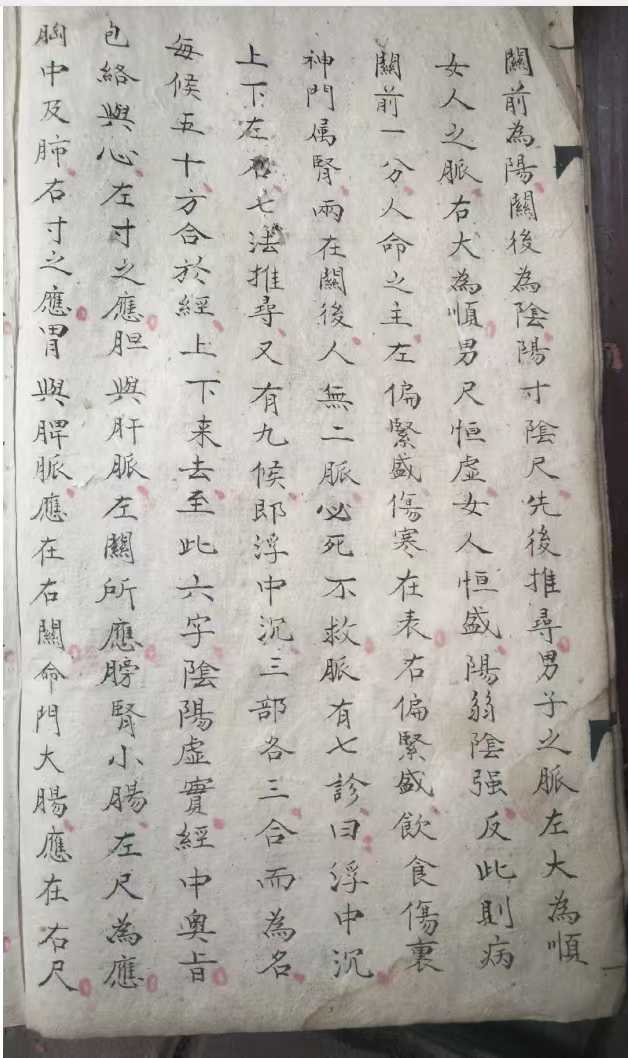 關前為陽關後為陰陽寸陰尺先後推尋男子之脈左大為順
女人之脈右大為順男尺恒虛女人恒盛陽弱陰强反此則病
關前一分人命之主左偏緊盛傷寒在表右偏緊盛飲食傷裏
神門属腎兩在關後人無二脈必死不救脈有七診曰浮中沉
上下左右七法推尋又有九候即浮中沉三部各三合而為名
每候五十方合於經上下来去至此六字陰陽虛實經中奥旨
包絡與心左寸之應胆與肝脈左關所應膀腎小腸左尺為應
胸中及肺右寸之應胃與脾脈應在右關命門大腸應在右尺